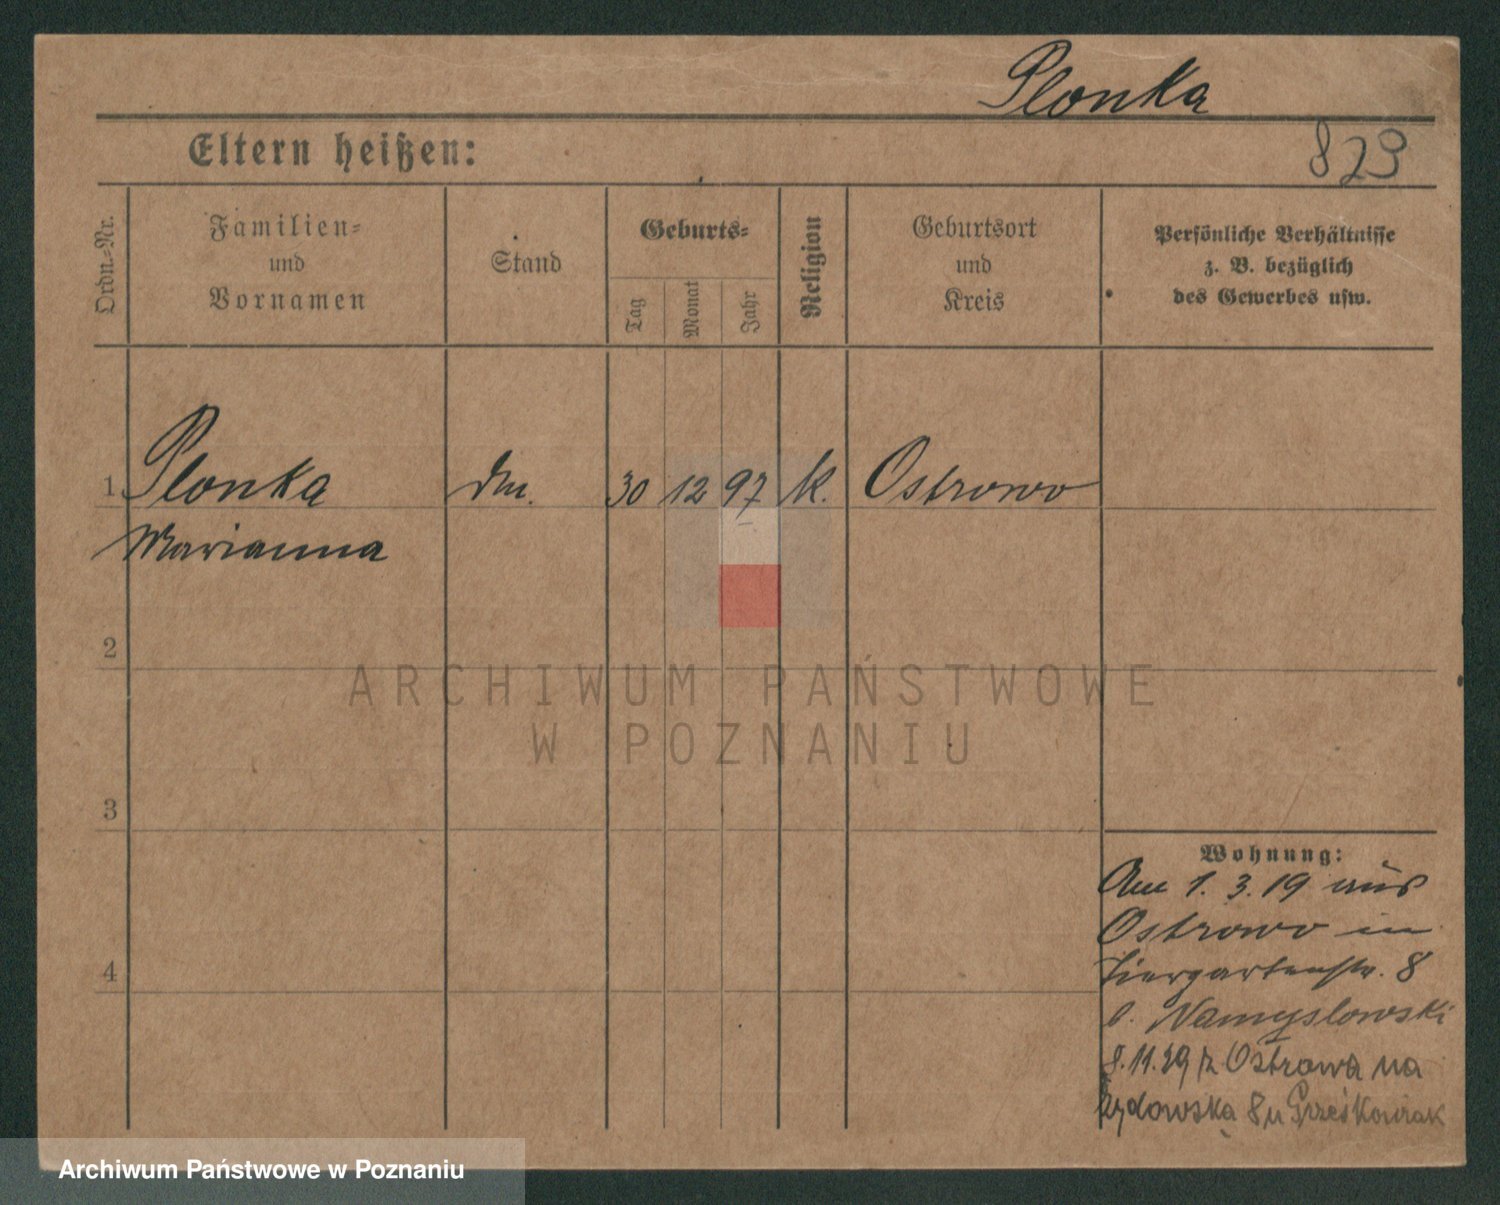 Plonka
Eltern heißen:
829
Ordn.-Nr.
Familien-
und
Vornamen
Stand
Geburts-
Tag
Monat
Jahr
Religion
Geburtsort
und
Kreis
Persönliche Verhältnisse
z. B. bezüglich
des Gewerbes usw.
1 Plonka dm. 30 12 97 k. Ostrowo
Marianna
2
3
4
Wohnung:
Am 1. 3. 19 aus
Ostrowo in
Tiergartenstr. 8
b. Namyslowski
8.11.19 z Ostrowa na
Żydowska 8 u Grześkowiak
ARCHIWUM PAŃSTWOWE
W POZNANIU
Archiwum Państwowe w Poznaniu